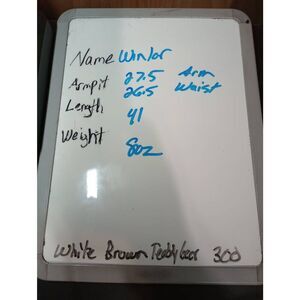 Name Winlor
Armpit 27.5 Arm
26.5 Waist
Length 41
Weight 8oz
White Brown Teddybear 300